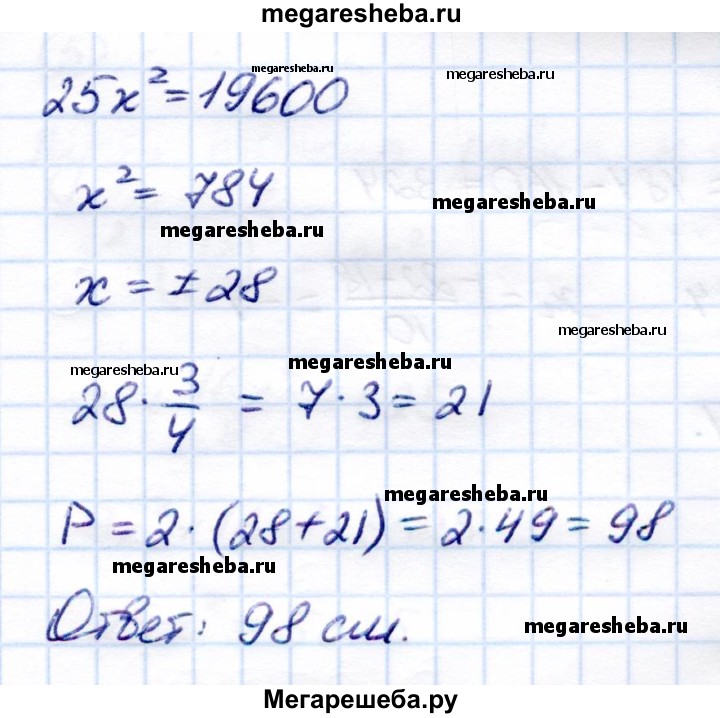 megaresheba.ru
megaresheba.ru
megaresheba.ru
25x² = 19600
x² = 784
megaresheba.ru
megaresheba.ru
x = ± 28
megaresheba.ru
megaresheba.ru
megaresheba.ru
28 · 3/4 = 7 · 3 = 21
megaresheba.ru
P = 2 · (28 + 21) = 2 · 49 = 98
megaresheba.ru
Ответ: 98 см.
megaresheba.ru
Мегарешеба.ру